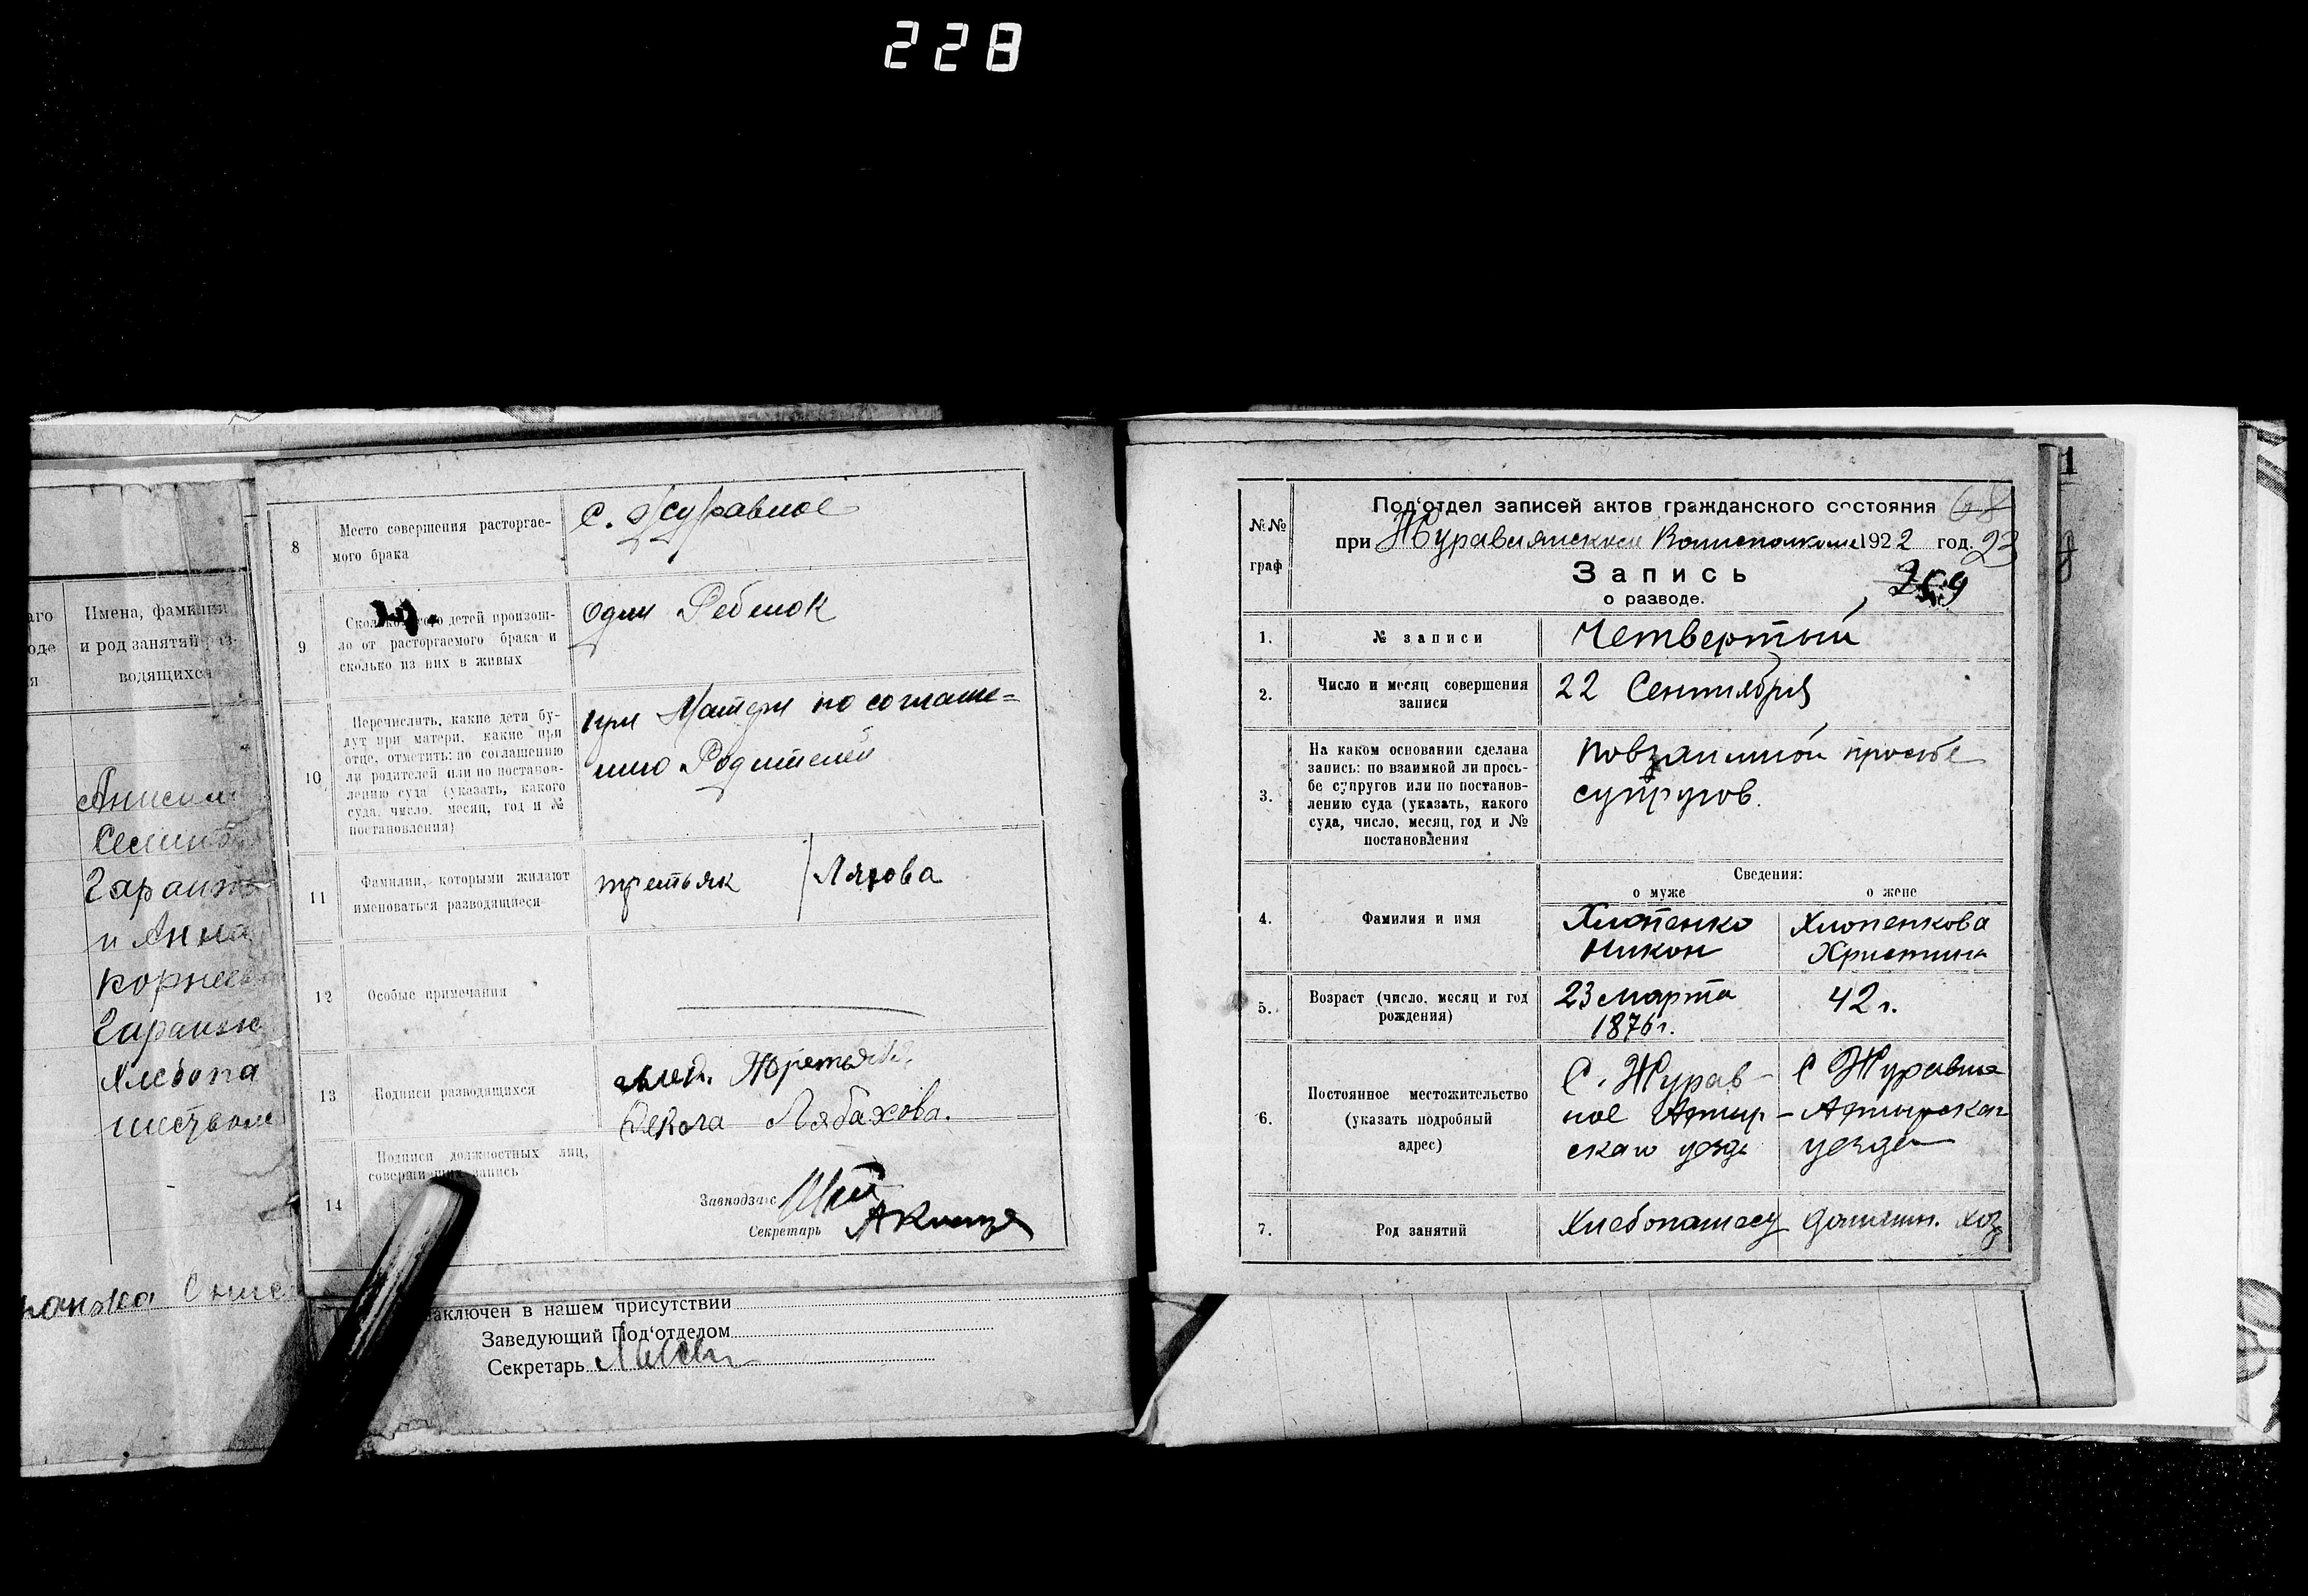 228
аго
оде
я
Имена, фамилии
и род занятий раз-
водящихся
Корнеев
Хлебопа
8
Место совершения расторгае-
мого брака
с. Журавное
9
детей произош-
ло от расторгаемого брака и
сколько из них в живых
один Ребенок
10
Перечислить, какие дети бу-
дут при матери, какие при
отце, отметить: по соглашению
ли родителей или по постанов-
лению суда (указать, какого
суда, число, месяц, год и №
постановления)
при Матери по соглаше=
нию Родителей
11
Фамилии, которыми желают
именоваться разводящиеся
третьяк
12
Особые примечания
13
Подписи разводящихся
14
Подписи должностных лиц,
запись
Завподзагс
Секретарь
заключен в нашем присутствии
Заведующий Под‘отделом
Секретарь
№№
граф
Под‘отдел записей актов гражданского состояния
68
при 1922 год.
23
Запись
о разводе.
1.
№ записи
Четвертый
2.
Число и месяц совершения
записи
22 Сентября
3.
На каком основании сделана
запись: по взаимной ли прось-
бе супругов или по постанов-
лению суда (указать, какого
суда, число, месяц, год и №
постановления
по взаимной просбе
супругов.
Сведения:
о муже
о жене
4.
Фамилия и имя
Хлопенко
Никон
Хлопенкова
Христина
5.
Возраст (число, месяц и год
рождения)
23 марта
1876 г.
42 г.
6.
Постоянное местожительство
(указать подробный
адрес)
С. Журав-
ное Ахтыр-
скаго уезда
С Журавна
Ахтырскаг
уезда
7.
Род занятий
Хлебопашец
домашн. хоз
1